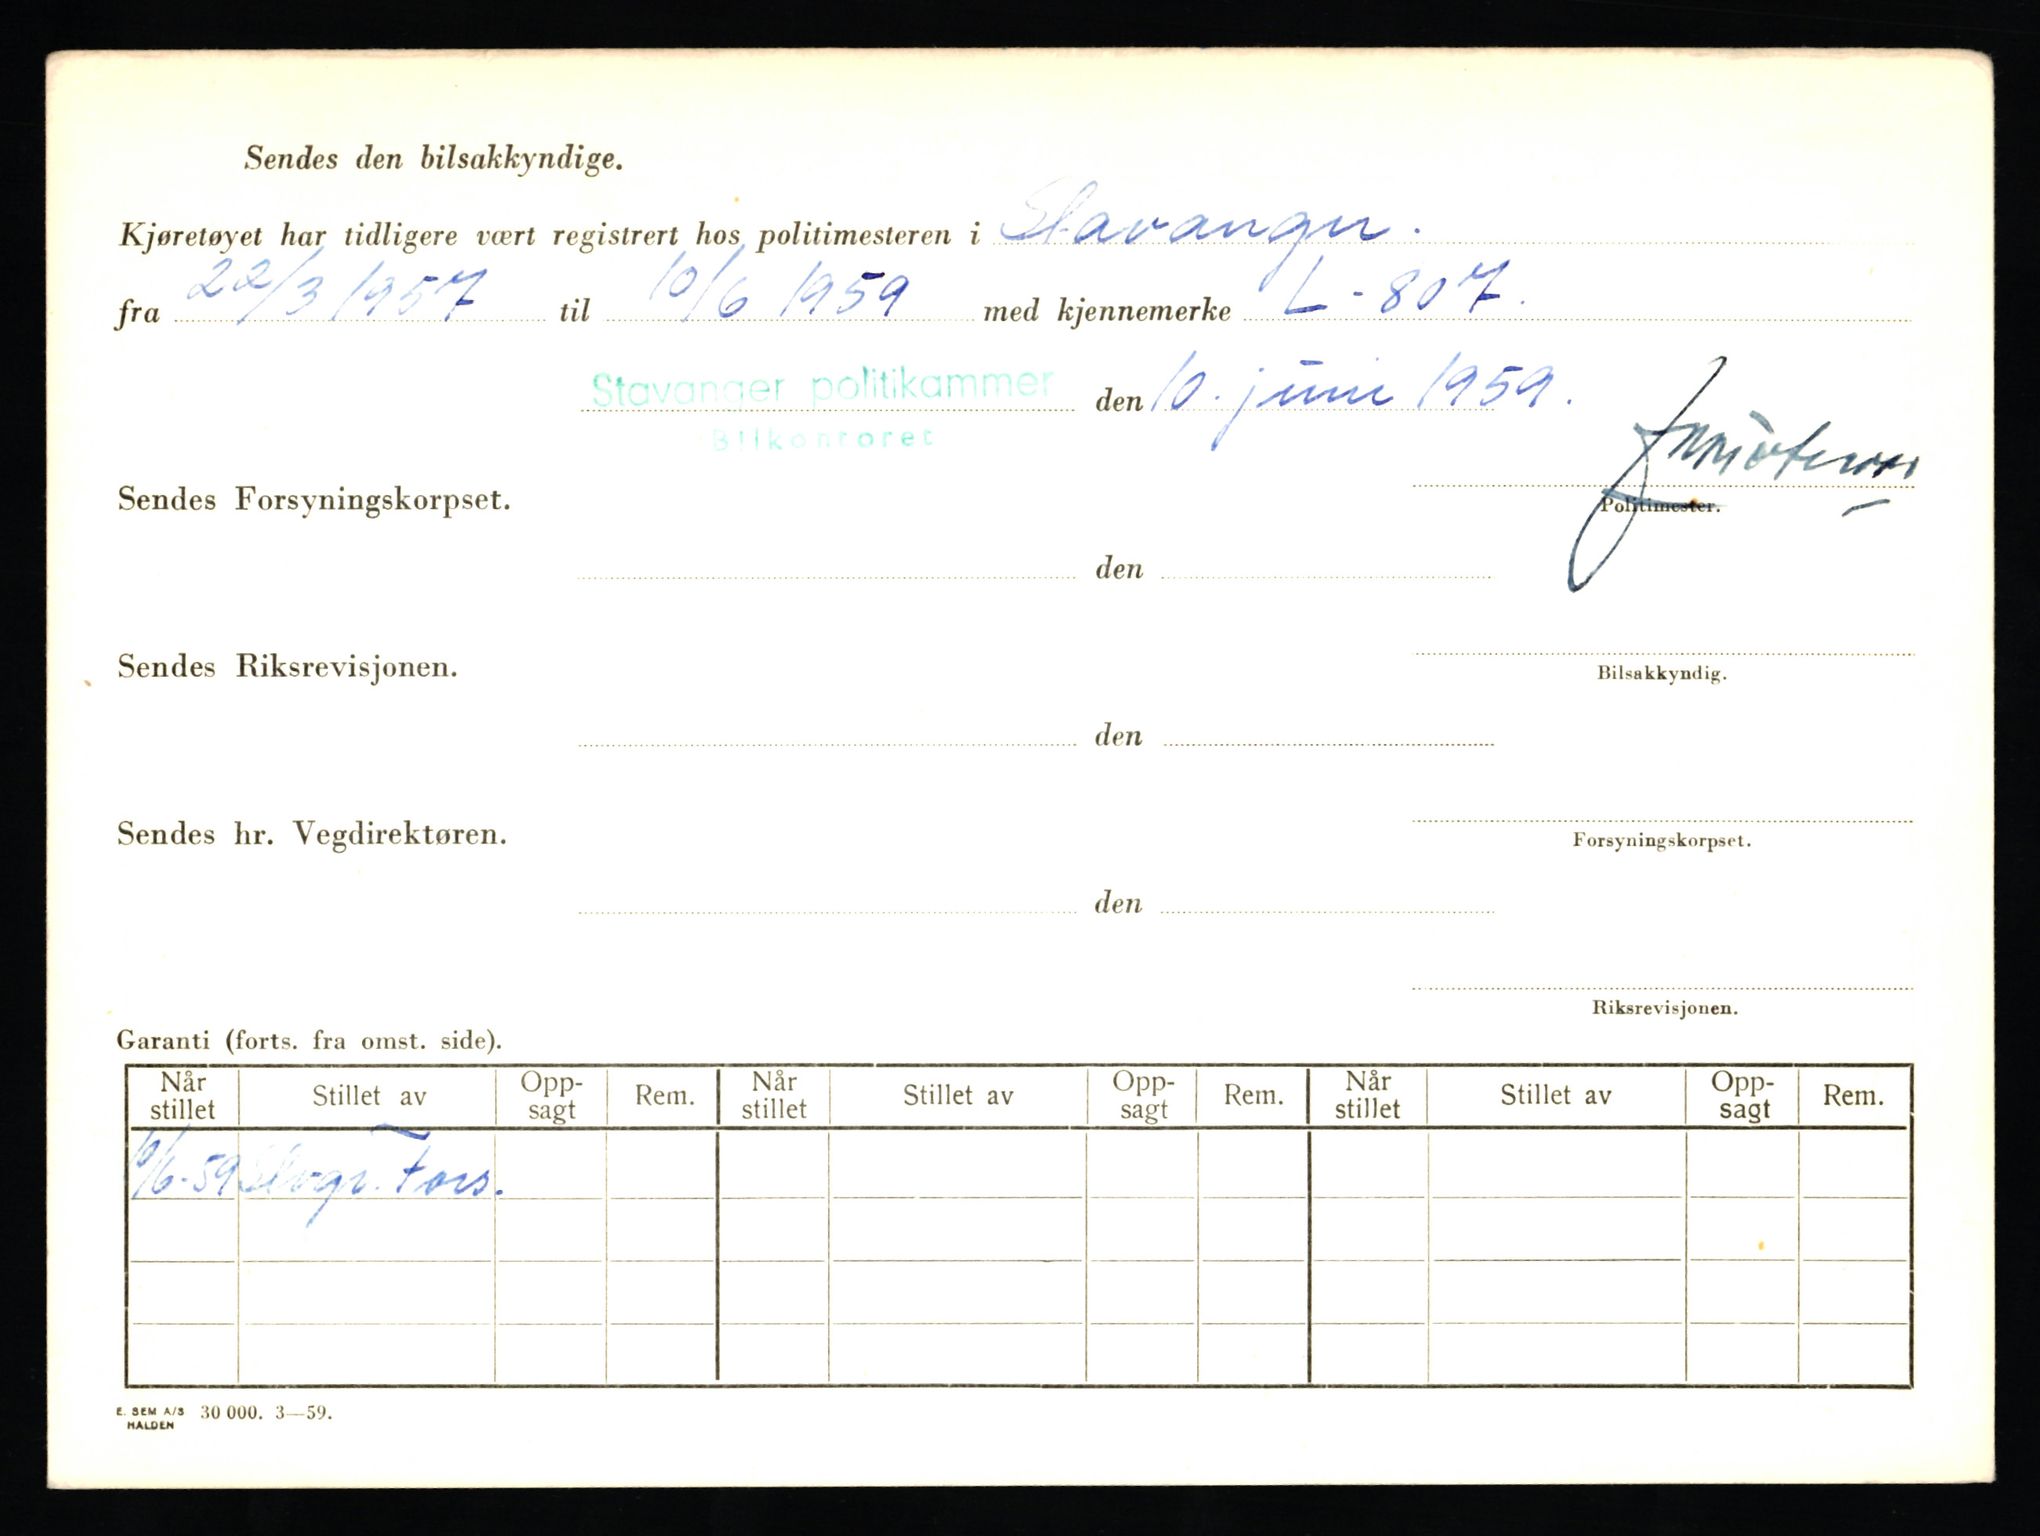 Sendes den bilsakkyndige.
Kjøretøyet har tidligere vært registrert hos politimesteren i Stavanger.
fra 22/3 1957 til 10/6 1959 med kjennemerke L-807.
Stavanger politikammer den 10. juni 1959.
Bilkontoret
Sendes Forsyningskorpset.
Politimester.
den
Sendes Riksrevisjonen.
Bilsakkyndig.
den
Sendes hr. Vegdirektøren.
Forsyningskorpset.
den
Riksrevisjonen.
Garanti (forts. fra omst. side).
Når stillet Stillet av Opp-sagt Rem. Når stillet Stillet av Opp-sagt Rem. Når stillet Stillet av Opp-sagt Rem.
10/6-59 Stvgr. Fors.
E. SEM A/S HALDEN 30 000. 3—59.